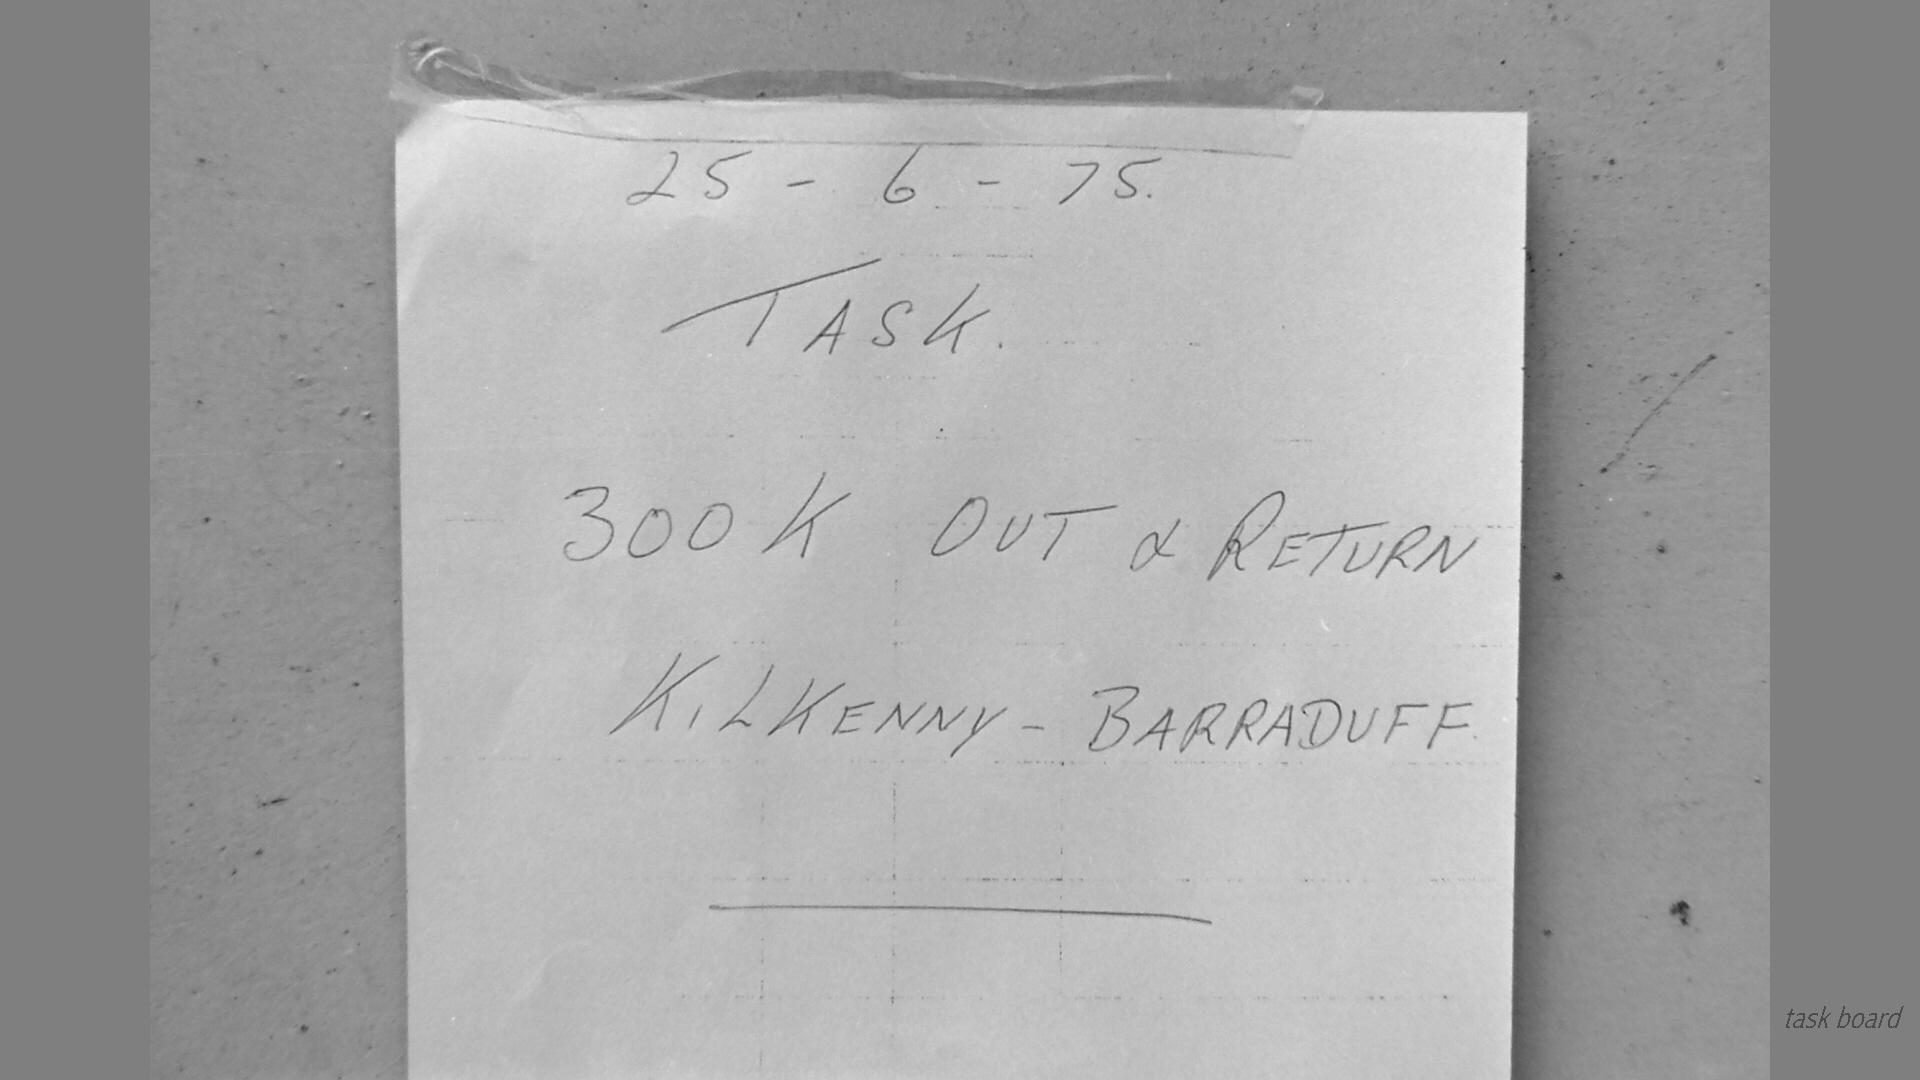 25 - 6 - 75.
TASK.
300K OUT & RETURN
KILKENNY - BARRADUFF.
task board